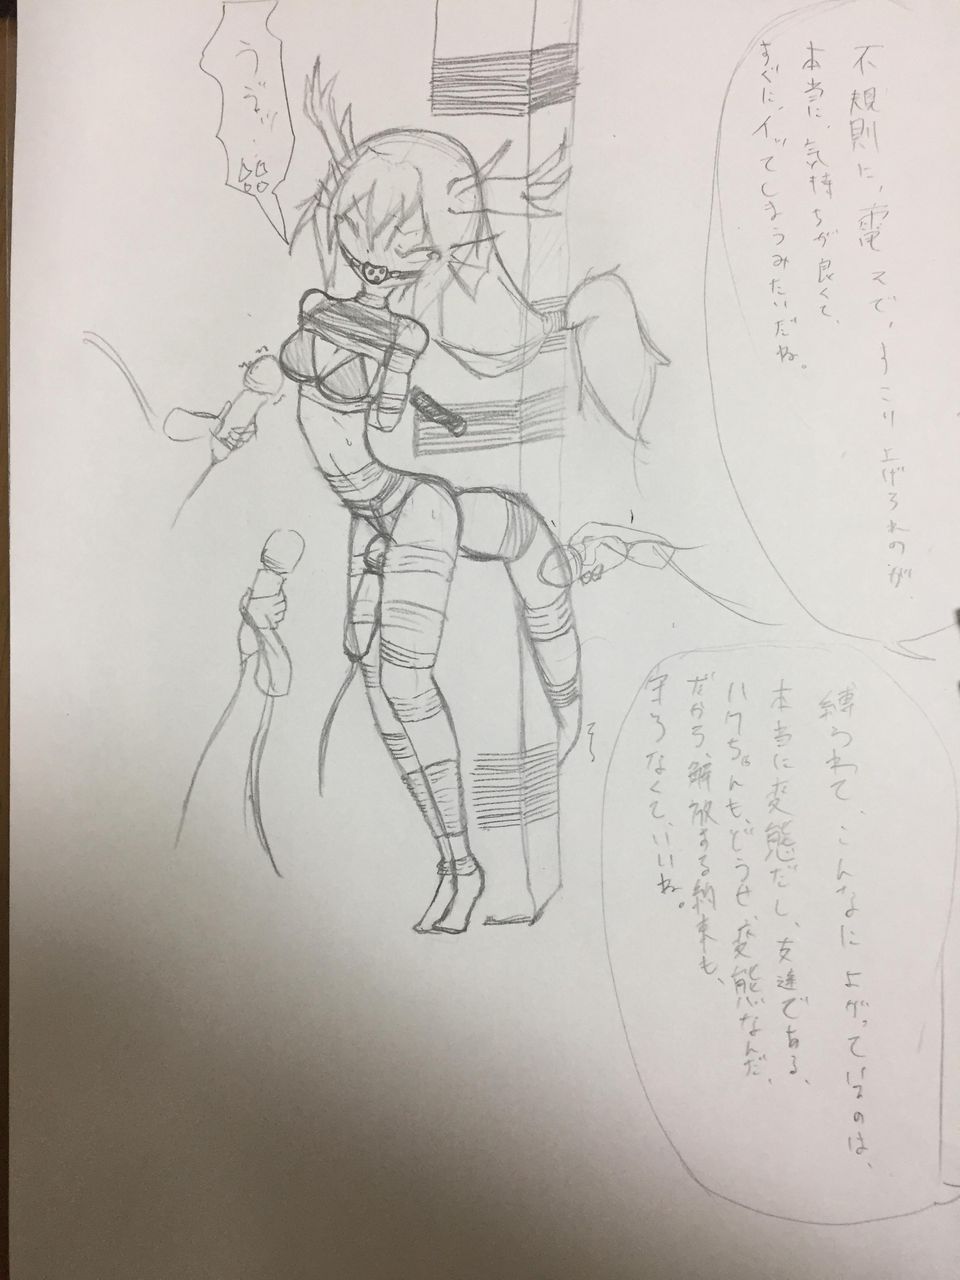 不規則に、電マで、すこり上げられのが、
本当に、気持ちが良くて、
すぐに、イッてしまうみたいだね。
うぅッ…
縛られて、こんなによがっているのは、
本当に変態だし、友達である、
ハクちゃんも、どうせ、変態なんだ、
だから、解放する約束も、
守らなくて、いいね。